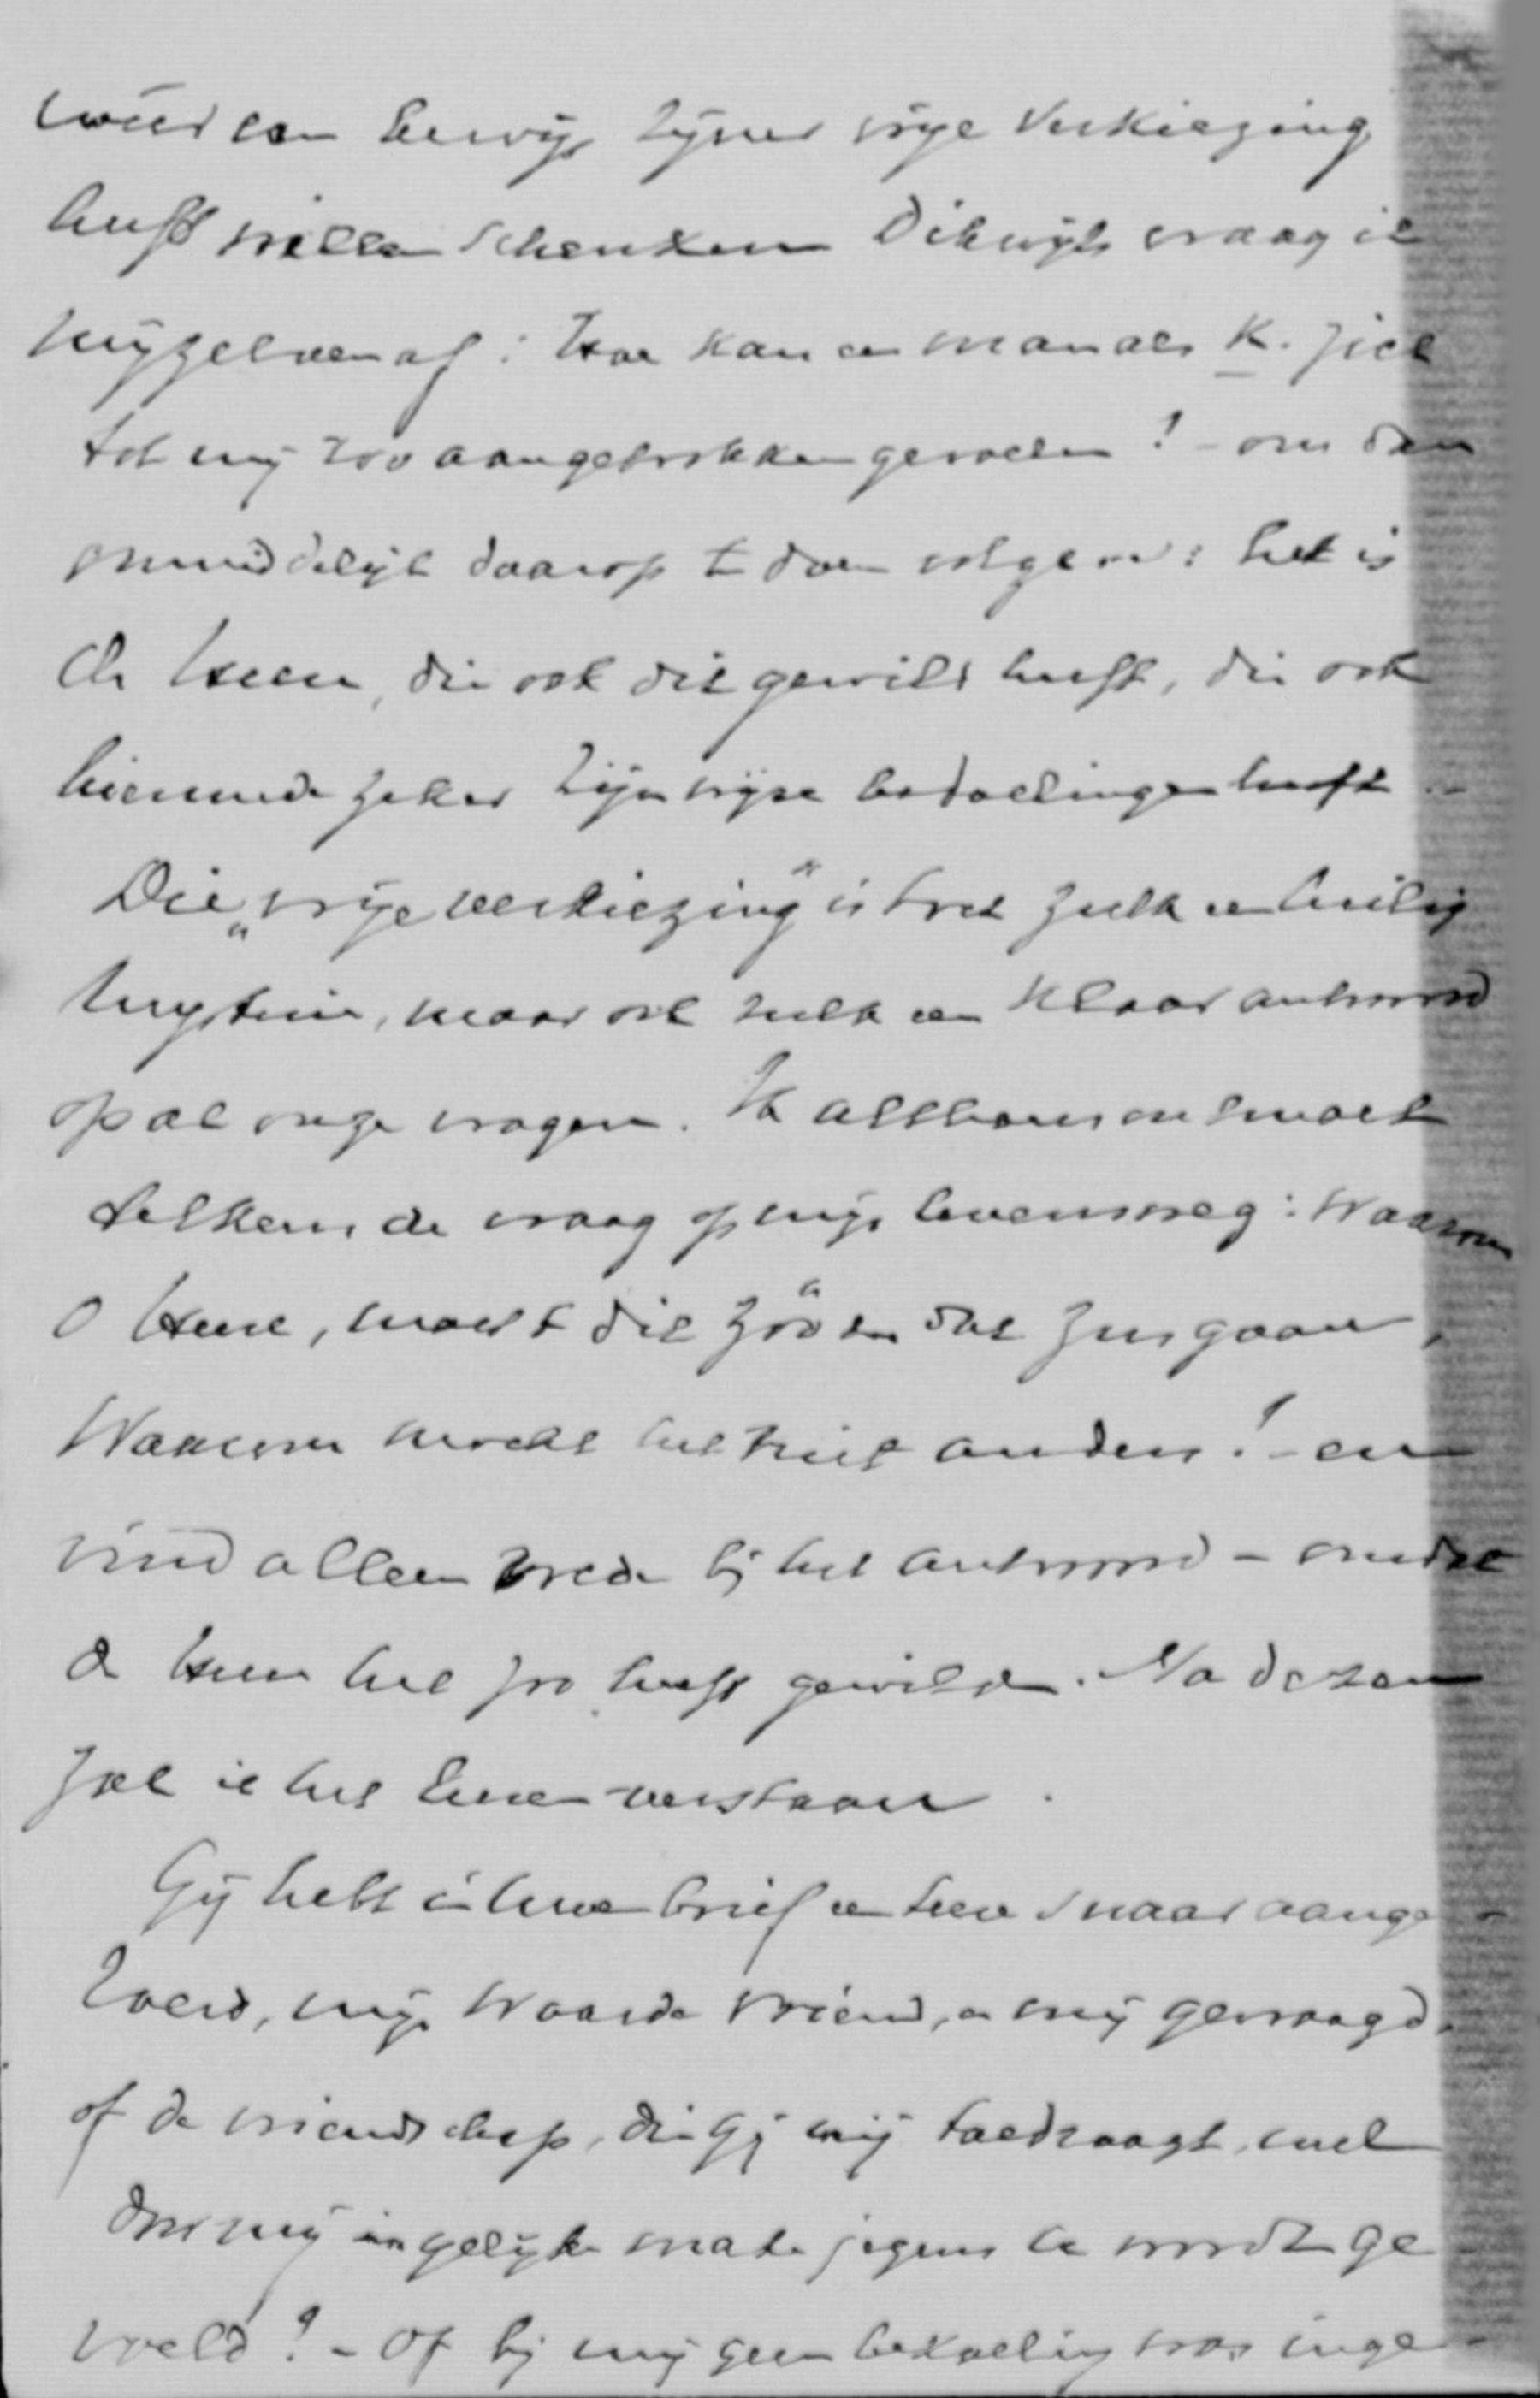 weer een bewijs Zijner vrije Verkiezing
heeft willen schenken Dikwijls vraag ik
mijzelven af: Hoe kan een man als K. zich
tot mij zoo aangetrokken gevoelen? - om dan
onmiddelijk daarop te doen volgen: het is
de Heer, die ook dit gewild heeft, die ook
hiermede zeker Zijn wijze bedoelingen heeft.-
Die „vrije verkiezing" is toch zulk een heilig
mysterie, maar ook zulk een klaar antwoord
op al onze vragen. Ik althans ontmoet
telkens de vraag op mijn levensweg: Waarom
o Heere, moest dit zóó en dat zus gaan,
Waarom mocht het niet anders? - en
vind alleen vrede bij het antwoord - omdat
de Heer het zoo heeft gewild. Na dezen
zal ik het beter verstaan.
Gij hebt in Uwe brief een teere snaar aange-
roerd, mijn waarde vriend, en mij gevraagd,
of de vriendschap, die Gij mij toedraagt, wel
door mij in gelijke mate jegens U wordt ge-
voeld? - Of bij mij geen bekoeling was inge-